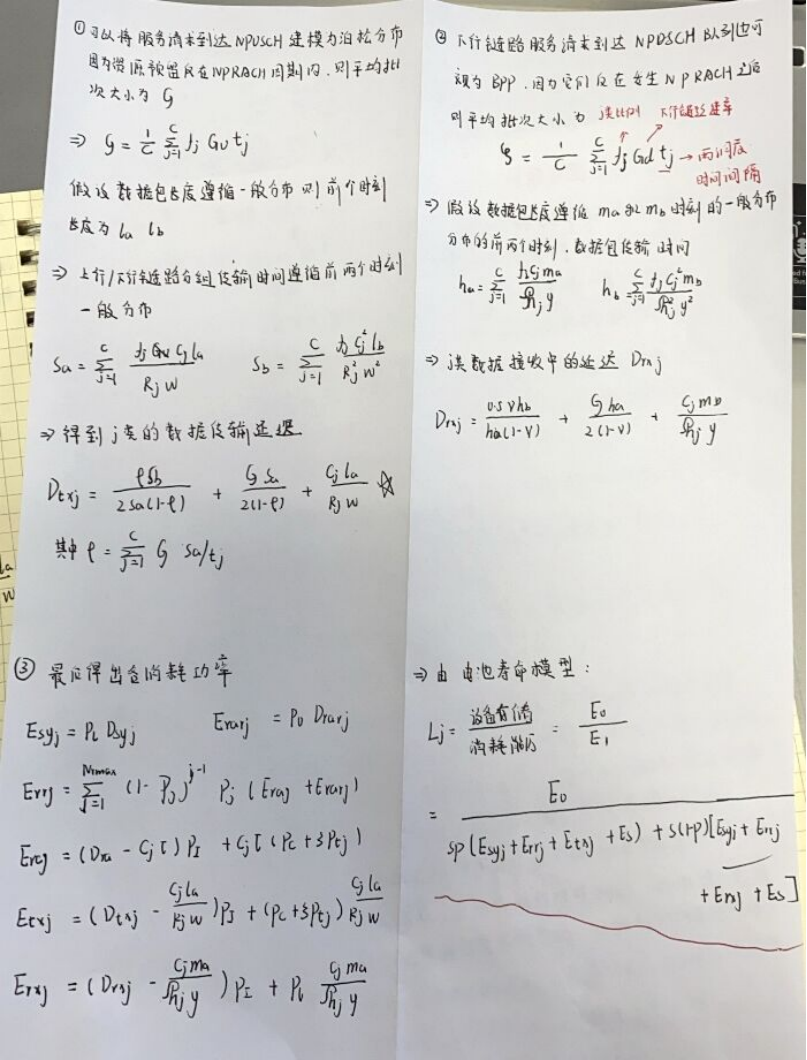 ① 可以将服务请求到达 NPUSCH 建模为泊松分布
因为资源预留只在NPRACH周期内,则平均批
次大小为 G
⇒ G = 1/C ∑_{j=1}^{C} fj Gu tj
假设数据包长度遵循一般分布 则前个时刻
长度为 la lb
⇒ 上行/下行链路分组传输时间遵循前两个时刻
一般分布
Sa = ∑_{j=1}^{C} fj Cj la / Rj w    Sb = ∑_{j=1}^{C} fj Cj² lb / Rj² w²
⇒ 得到 j 类的数据传输延迟
Dtxj = ρSb / 2Sa(1-ρ) + G Sa / 2(1-ρ) + Cj la / Rj w ☆
其中 ρ = ∑_{j=1}^{C} G Sa/tj
② 下行链路服务请求到达 NPDSCH 队列也可
视为 BPP,因为它们仅在发生 NPRACH 之后
则平均批次大小为 j类比例 下行链路速率
ς = 1/C ∑_{j=1}^{C} fj Gd tj → 两间隔
时间间隔
⇒ 假设数据包长度遵循 ma 和 mb 时刻的一般分布
分布的前两个时刻,数据包传输时间
ha = ∑_{j=1}^{C} fj Cj ma / Rj y    hb = ∑_{j=1}^{C} fj Cj² mb / Rj² y²
⇒ j类数据接收中的延迟 Drxj
Drxj = 0.5 v hb / ha(1-v) + G ha / 2(1-v) + Cj mb / Rj y
③ 最后得出各消耗功率
Esyj = Pl Dsyj    Erarj = Pl Drarj
Errj = ∑_{j=1}^{Nrmax} (1-Pj)^{j-1} Pj (Eraj + Erarj)
Eraj = (Dra - Cj τ) PI + Cj τ (Pc + 3Ptj)
Etxj = (Dtxj - Cj la / Rj w) PI + (Pc + 3Ptj) Cj la / Rj w
Erxj = (Drxj - Cj ma / Rj y) PI + Pl Cj ma / Rj y
⇒ 由电池寿命模型:
Lj = 设备存储 / 消耗能历 = E0 / E1
= E0 / Sp(Esyj + Errj + Etxj + Es) + S(1-p)[Esyj + Errj
+ Erxj + Es]
la
w